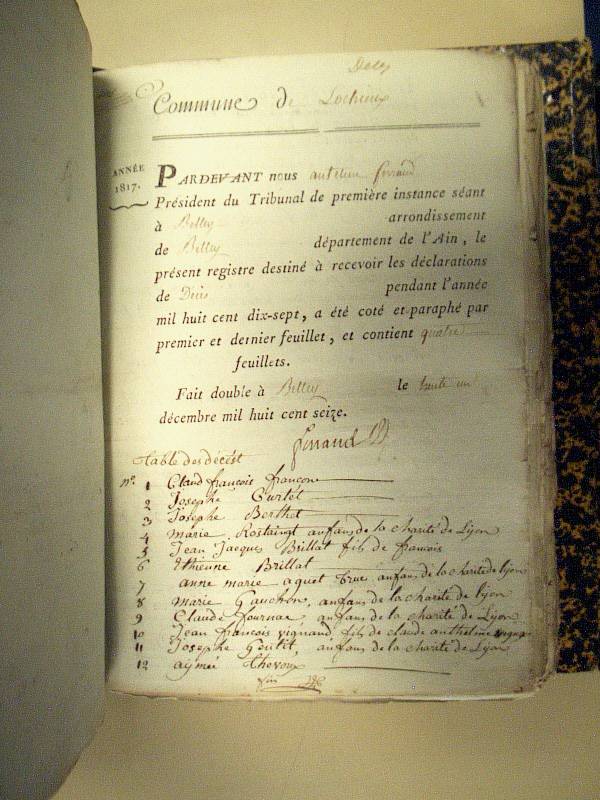 Commune de Lochieux
ANNÉE
1817.
PARDEVANT nous anthelme ferrand
Président du Tribunal de première instance séant
à Belley arrondissement
de Belley département de l'Ain, le
présent registre destiné à recevoir les déclarations
de Décès pendant l'année
mil huit cent dix-sept, a été coté et paraphé par
premier et dernier feuillet, et contient quatre
feuillets.
Fait double à Belley le trente un
décembre mil huit cent seize.
ferrand
Table des décest
n.° 1 Claud françois françon
2 Josephe Curtet
3 Josephe Berthet
4 marie Rostaingt anfans de la charité de Lyon
5 Jean Jacques Brillat fils de francois
6 Ethienne Brillat
7 anne marie aquet anfans de la charite de lyon
8 marie Gauchon, anfans de la charite de lyon
9 Claude fournac, anfans de la charité de Lyon
10 Jean francois vignand, fils de claude anthelme
11 Josephe Gentit, anfans de la charite de Lyon
12 aiymée Thevoux
fin